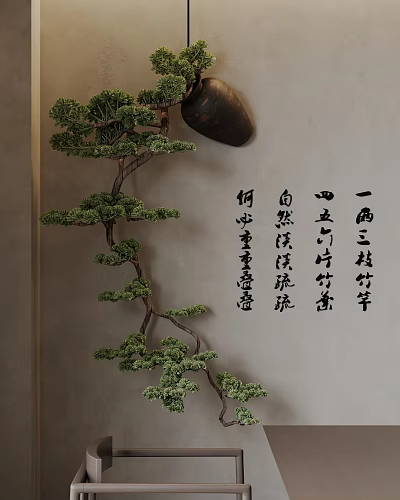 一两三枝竹竿
四五六片竹葉
自然淡淡疏疏
何必重重叠叠